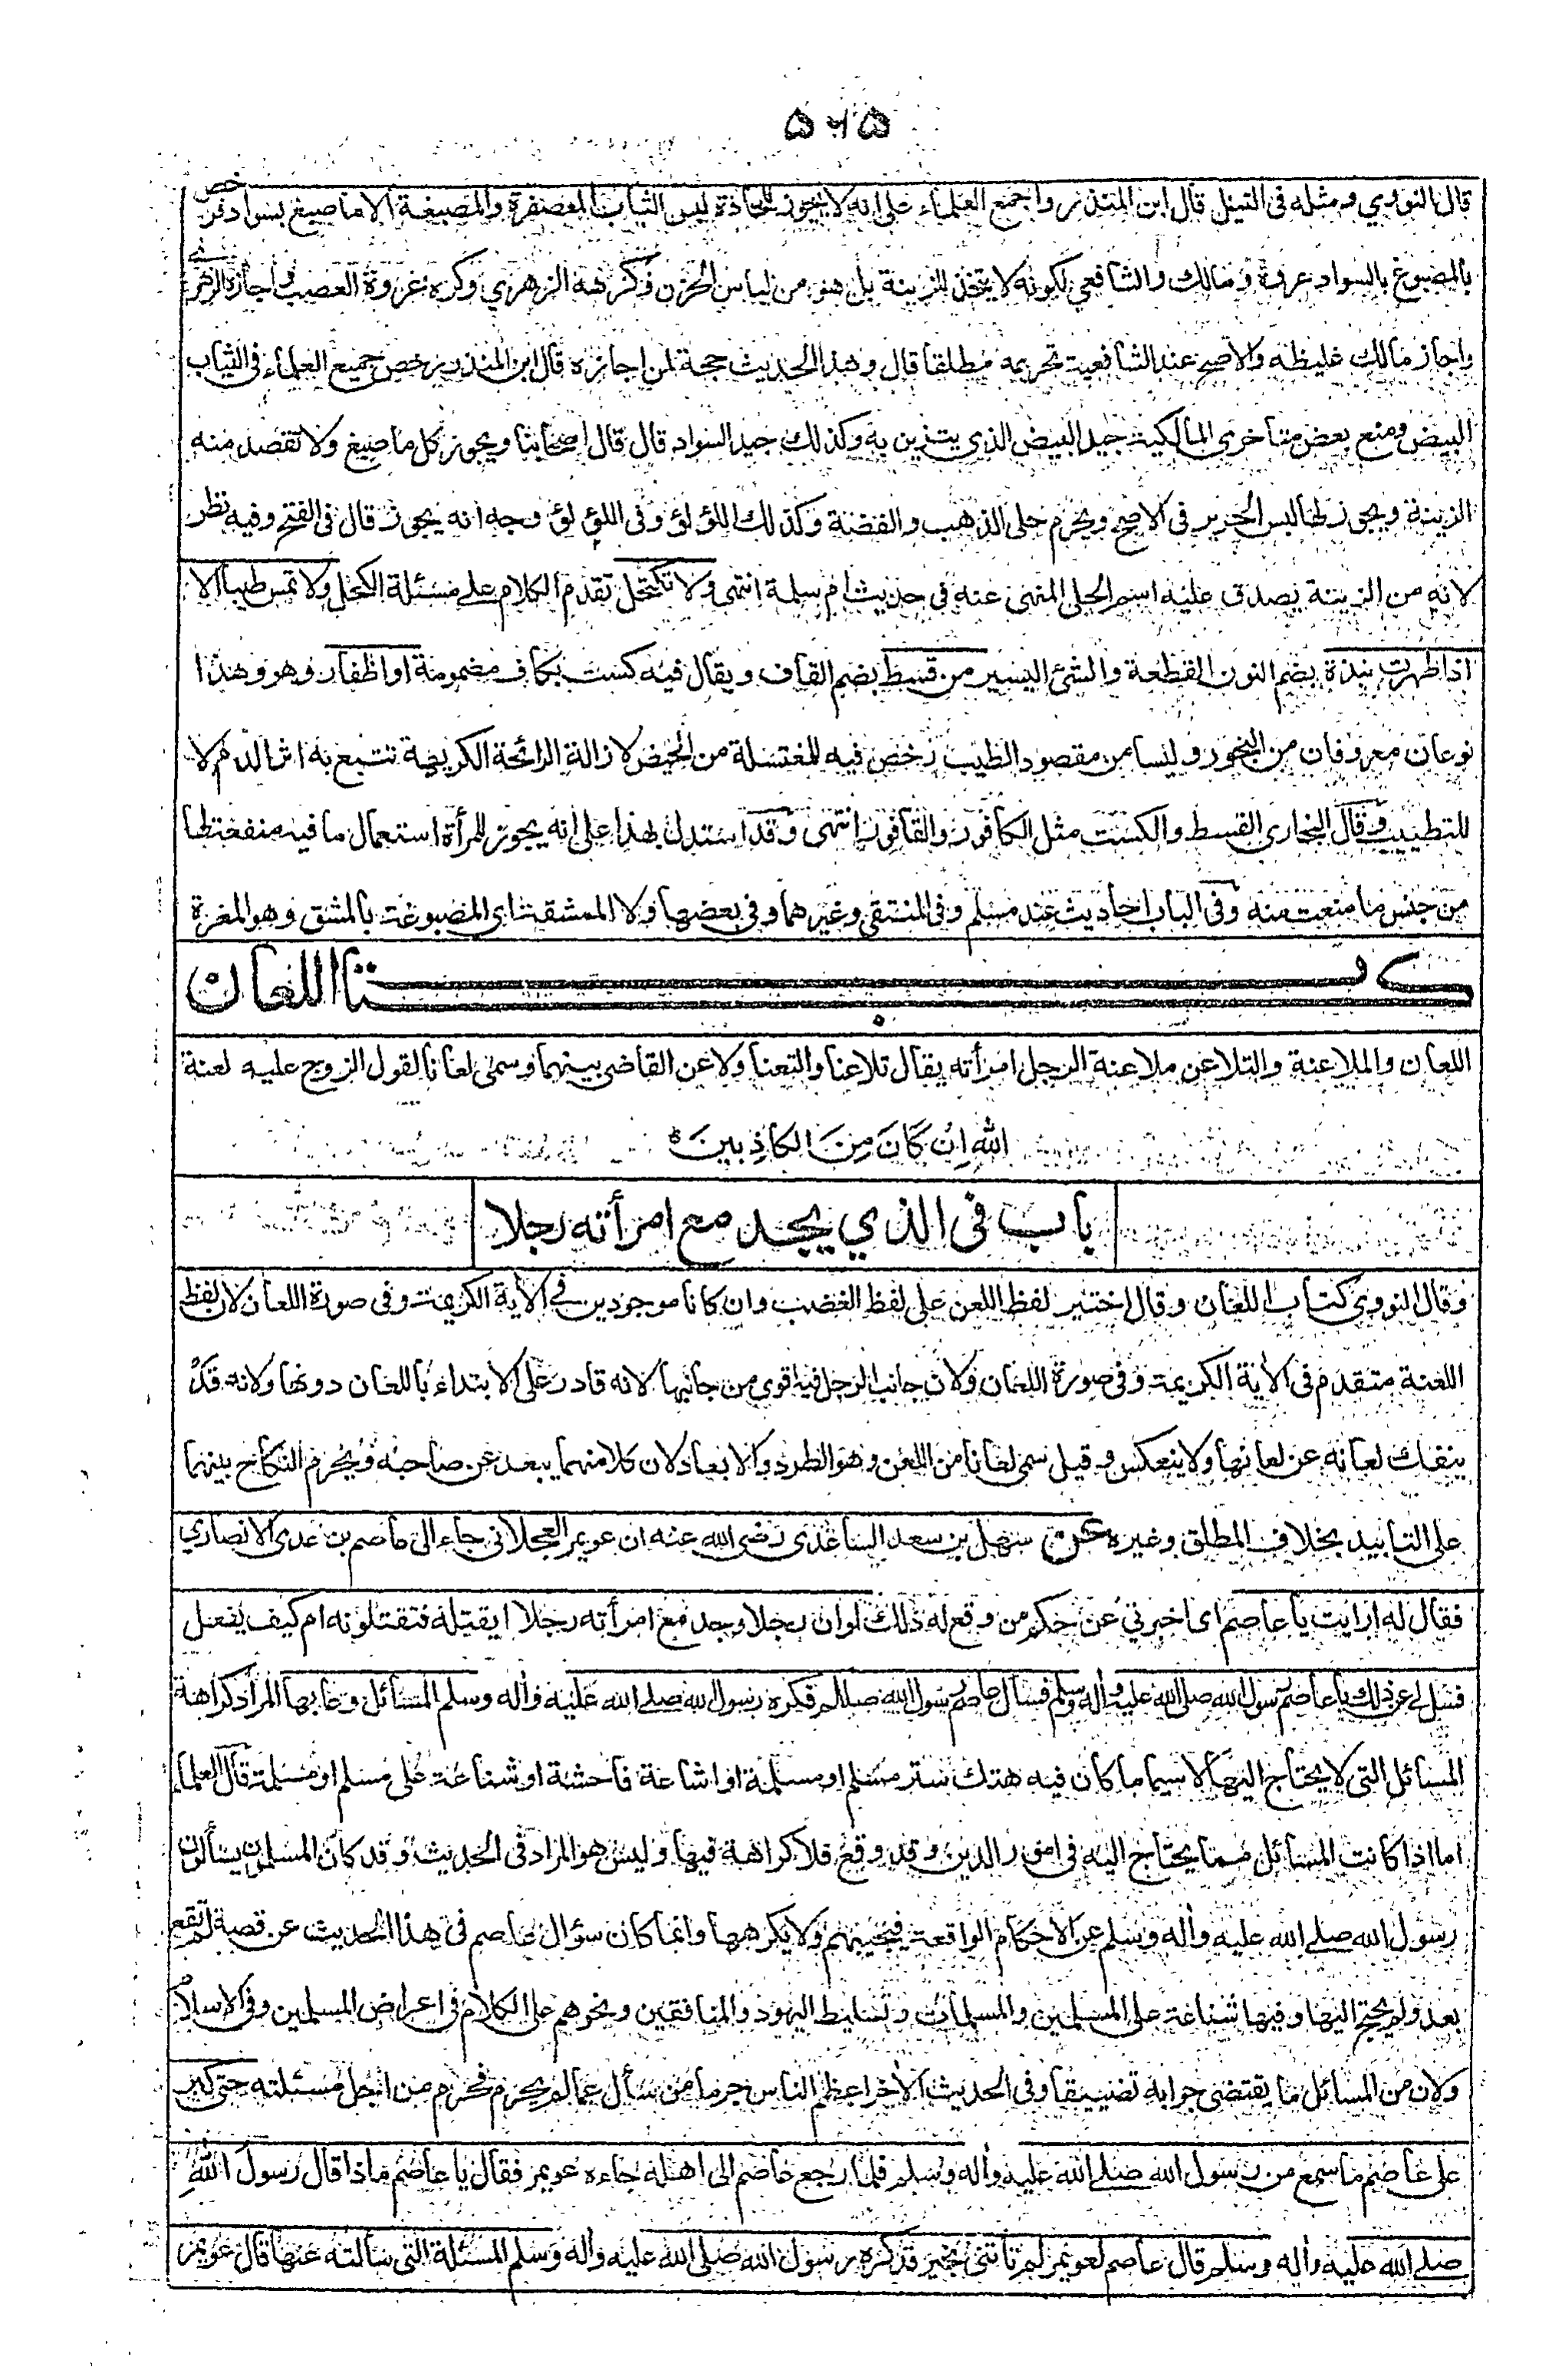 ۵۶۵
قال النووي ومثله فى النيل قال ابن المنذر واجمع العلماء على انه لا يجوز للحادة لبس الثياب المعصفرة والمصبغة الا ما صبغ بسواد فرخص
بالمصبوغ بالسواد عروة ومالك والشافعي لكونه لا يتخذ للزينة بل هو من لباس الحزن وكرهه الزهري وكره عروة العصب واجازه الزهري
واجاز مالك غليظه والاصح عند الشافعية تحريمه مطلقا قال وهذا الحديث حجة لمن اجازه قال ابن المنذر رخص جميع العلماء فى الثياب
البيض ومنع بعض متأخرى المالكية جيد البيض الذي يتزين به وكذلك جيد السواد قال قال اصحابنا ويجوز كل ما صبغ ولا تقصد منه
الزينة ويجوز لها لبس الحرير فى الاصح ويحرم حلى الذهب والفضة وكذلك اللؤلؤ وفى اللؤلؤ وجه انه يجوز قال فى الفتح وفيه نظر
لانه من الزينة يصدق عليه اسم الحلى المنهى عنه فى حديث ام سلمة انتهى ولا تكتحل تقدم الكلام على مسئلة الكحل ولا تمس طيبا الا
اذا طهرت نبذة بضم النون القطعة والشئ اليسير من قسط بضم القاف ويقال فيه كست بكاف مضمومة او اظفار وهو وهذا
نوعان معروفان من البخور وليسا من مقصود الطيب رخص فيه للمغتسلة من الحيض لازالة الرائحة الكريهة تتبع به اثر الدم لا
للتطيب وقال البخارى القسط والكست مثل الكافور والقافور انتهى وقد استدل بهذا على انه يجوز للمرأة استعمال ما فيه منفعة لها
من جنس ما منعت منه وفى الباب احاديث عند مسلم وفى المنتقى وغيرهما وفى بعضها ولا الممشقة اى المصبوغة بالمشق وهو المغرة
كتاب اللعان
اللعان والملاعنة والتلاعن ملاعنة الرجل امرأته يقال تلاعنا والتعنا ولاعن القاضى بينهما وسمى لعانا لقول الزوج عليه لعنة
الله اِن كَانَ مِنَ الكاذِبينَ
باب فى الذي يجد مع امرأته رجلا
وقال النووى كتاب اللعان وقال اختير لفظ اللعن على لفظ الغضب وان كانا موجودين فى الاية الكريمة وفى صورة اللعان لان لفظ
اللعنة متقدم فى الاية الكريمة وفى صورة اللعان ولان جانب الرجل فيه اقوى من جانبها لانه قادر على الابتداء باللعان دونها ولانه قد
ينفك لعانه عن لعانها ولا ينعكس وقيل سمى لعانا من اللعن وهو الطرد والابعاد لان كلا منهما يبعد عن صاحبه ويحرم النكاح بينهما
على التابيد بخلاف المطلق وغيره عن سهل بن سعد الساعدى رضى الله عنه ان عويمر العجلانى جاء الى عاصم بن عدى الانصاري
فقال له ارايت يا عاصم اى اخبرني عن حكم من وقع له ذلك لو ان رجلا وجد مع امرأته رجلا ايقتله فتقتلونه ام كيف يفعل
فسل لى عن ذلك يا عاصم رسول الله صلى الله عليه وأله وسلم فسأل عاصم رسول الله صلالم فكره رسول الله صلى الله عليه وأله وسلم المسائل وعابها المراد كراهة
المسائل التى لا يحتاج اليها لا سيما ما كان فيه هتك ستر مسلم او مسلمة او اشاعة فاحشة او شناعة على مسلم او مسلمة قال العلماء
اما اذا كانت المسائل مما يحتاج اليه فى امور الدين وقد وقع فلا كراهة فيها وليس هو المراد فى الحديث وقد كان المسلمون يسألون
رسول الله صلى الله عليه وأله وسلم عن الاحكام الواقعة فيجيبهم ولا يكرهها وانما كان سؤال عاصم فى هذا الحديث عن قصة لم تقع
بعد ولم يحتج اليها وفيها شناعة على المسلمين والمسلمات وتسليط اليهود والمنافقين ونحوهم على الكلام فى اعراض المسلمين وفى الاسلام
ولان من المسائل ما يقتضى جوابه تضييقا وفى الحديث الأخر اعظم الناس جرما من سأل عما لم يحرم فحرم من اجل مسئلته حتى كبر
على عاصم ما سمع من رسول الله صلى الله عليه وأله وسلم فلما رجع عاصم الى اهله جاءه عويمر فقال يا عاصم ماذا قال رسول الله
صلى الله عليه وأله وسلم قال عاصم لعويمر لم تأتنى بخير قد كره رسول الله صلى الله عليه وأله وسلم المسئلة التى سألته عنها قال عويمر